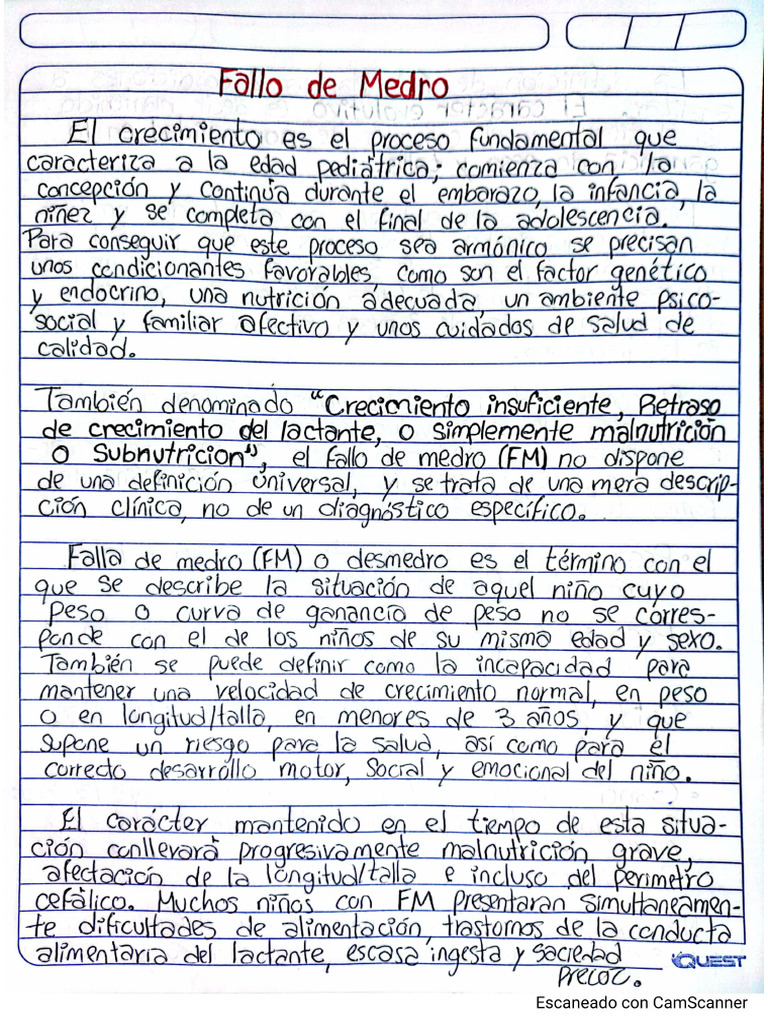 Fallo de Medro
El crecimiento es el proceso fundamental que
caracteriza a la edad pediátrica; comienza con la
concepción y continúa durante el embarazo, la infancia, la
niñez y se completa con el final de la adolescencia.
Para conseguir que este proceso sea armónico se precisan
unos condicionantes favorables, como son el factor genético
y endocrino, una nutrición adecuada, un ambiente psico-
social y familiar afectivo y unos cuidados de salud de
calidad.
También denominado "Crecimiento insuficiente, Retraso
de crecimiento del lactante, o simplemente malnutrición
o Subnutricion", el fallo de medro (FM) no dispone
de una definición universal, y se trata de una mera descrip-
ción clínica, no de un diagnóstico específico.
Falla de medro (FM) o desmedro es el término con el
que se describe la situación de aquel niño cuyo
Peso o curva de ganancia de peso no se corres-
ponde con el de los niños de su misma edad y sexo.
También se puede definir como la incapacidad para
mantener una velocidad de crecimiento normal, en peso
o en longitud/talla, en menores de 3 años, y que
supone un riesgo para la salud, así como para el
correcto desarrollo motor, Social y emocional del niño.
El carácter mantenido en el tiempo de esta situa-
ción conllevará progresivamente malnutrición grave,
afectación de la longitud/talla e incluso del perímetro
cefálico. Muchos niños con FM presentaran simultaneamen-
te dificultades de alimentación, trastornos de la conducta
alimentaria del lactante, escasa ingesta y saciedad
precoz.
QUEST
Escaneado con CamScanner